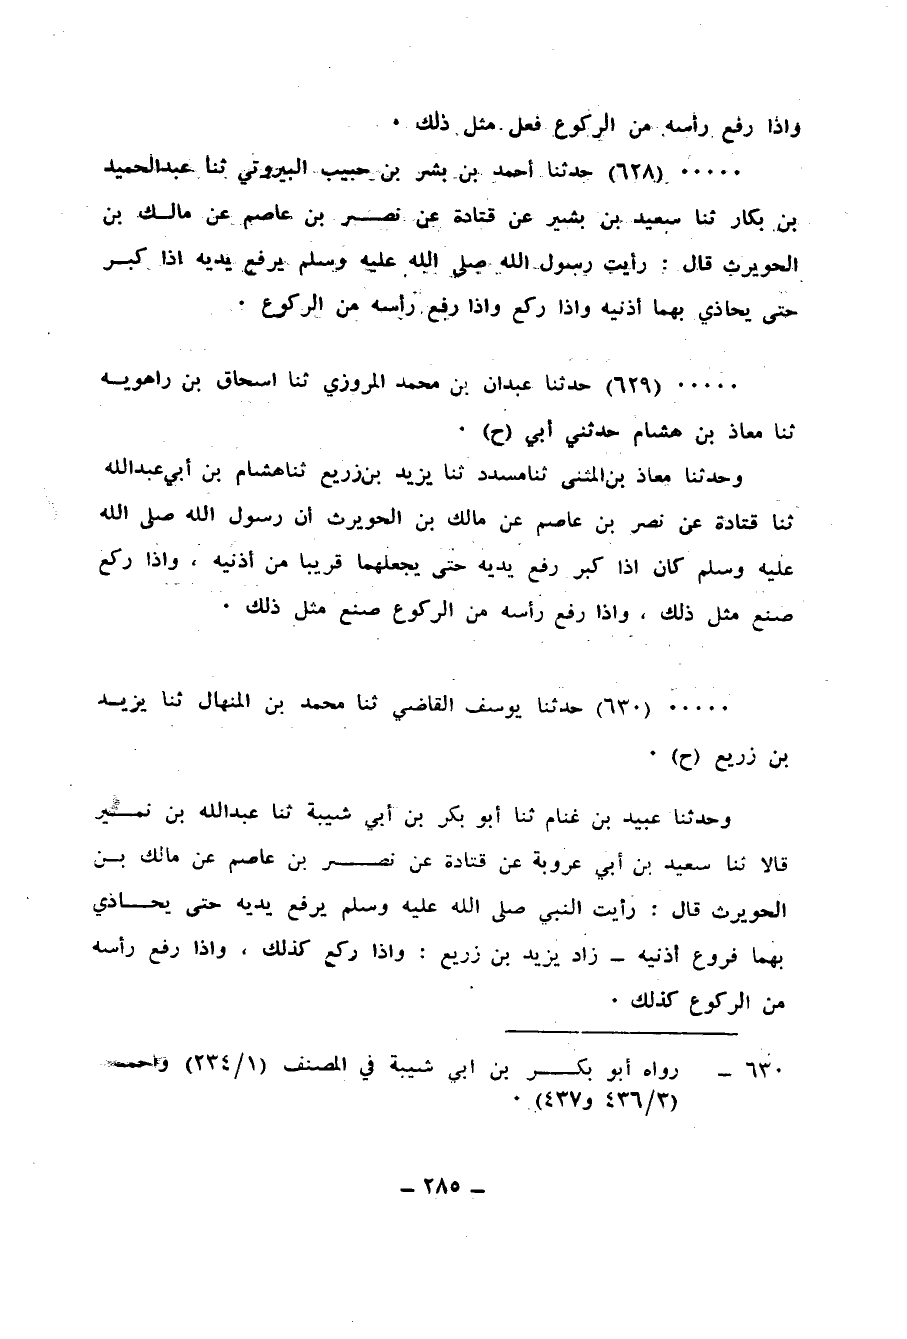 واذا رفع رأسه من الركوع فعل مثل ذلك ٠
٠٠٠٠٠ (٦٢٨) حدثنا أحمد بن بشر بن حبيب البيروتي ثنا عبدالحميد
بن بكار ثنا سعيد بن بشير عن قتادة عن نصر بن عاصم عن مالك بن
الحويرث قال : رأيت رسول الله صلى الله عليه وسلم يرفع يديه اذا كبر
حتى يحاذي بهما أذنيه واذا ركع واذا رفع رأسه من الركوع ٠
٠٠٠٠٠ (٦٢٩) حدثنا عبدان بن محمد المروزي ثنا اسحاق بن راهويه
ثنا معاذ بن هشام حدثني أبي (ح) ٠
وحدثنا معاذ بن المثنى ثنا مسدد ثنا يزيد بن زريع ثنا هشام بن أبي عبدالله
ثنا قتادة عن نصر بن عاصم عن مالك بن الحويرث أن رسول الله صلى الله
عليه وسلم كان اذا كبر رفع يديه حتى يجعلهما قريبا من أذنيه ، واذا ركع
صنع مثل ذلك ، واذا رفع رأسه من الركوع صنع مثل ذلك ٠
٠٠٠٠٠ (٦٣٠) حدثنا يوسف القاضي ثنا محمد بن المنهال ثنا يزيد
بن زريع (ح) ٠
وحدثنا عبيد بن غنام ثنا أبو بكر بن أبي شيبة ثنا عبدالله بن نمير
قالا ثنا سعيد بن أبي عروبة عن قتادة عن نصر بن عاصم عن مالك بن
الحويرث قال : رأيت النبي صلى الله عليه وسلم يرفع يديه حتى يحاذي
بهما فروع أذنيه ــ زاد يزيد بن زريع : واذا ركع كذلك ، واذا رفع رأسه
من الركوع كذلك ٠
٦٣٠ ــ رواه أبو بكر بن ابي شيبة في المصنف (٢٣٤/١) واحمد
(٤٣٦/٣ و٤٣٧) ٠
ــ ٢٨٥ ــ